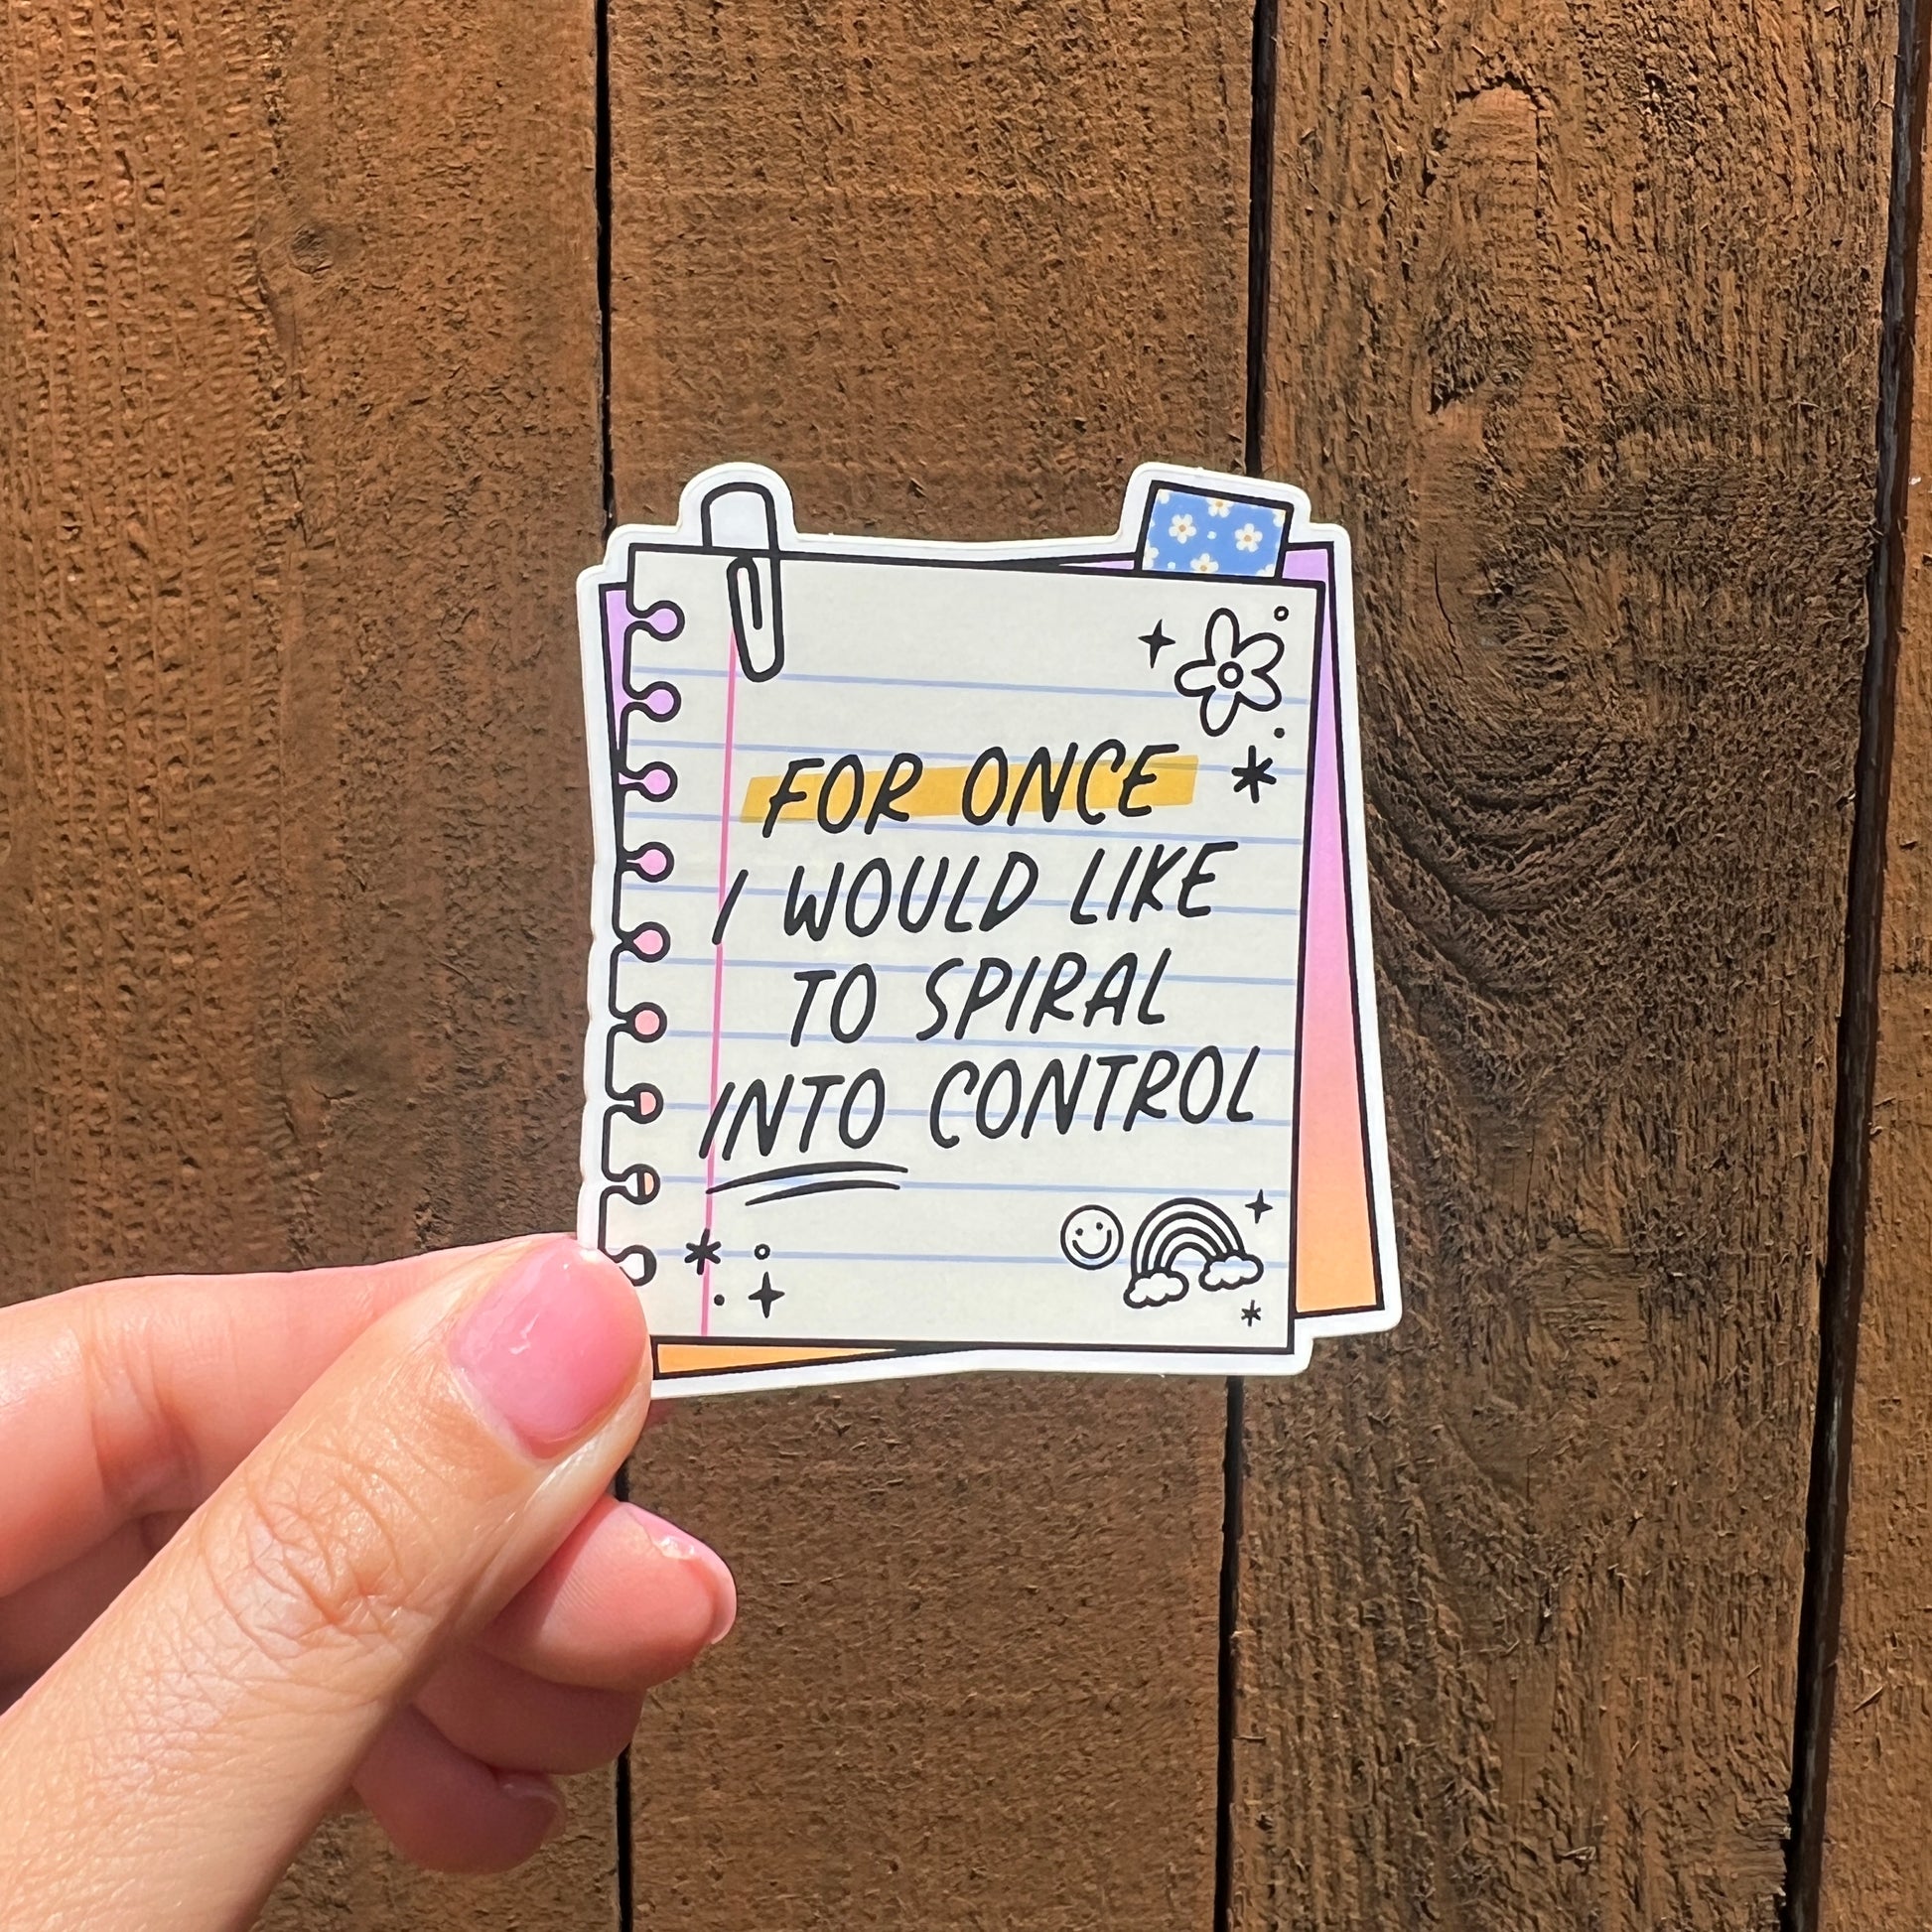 FOR ONCE
I WOULD LIKE
TO SPIRAL
INTO CONTROL